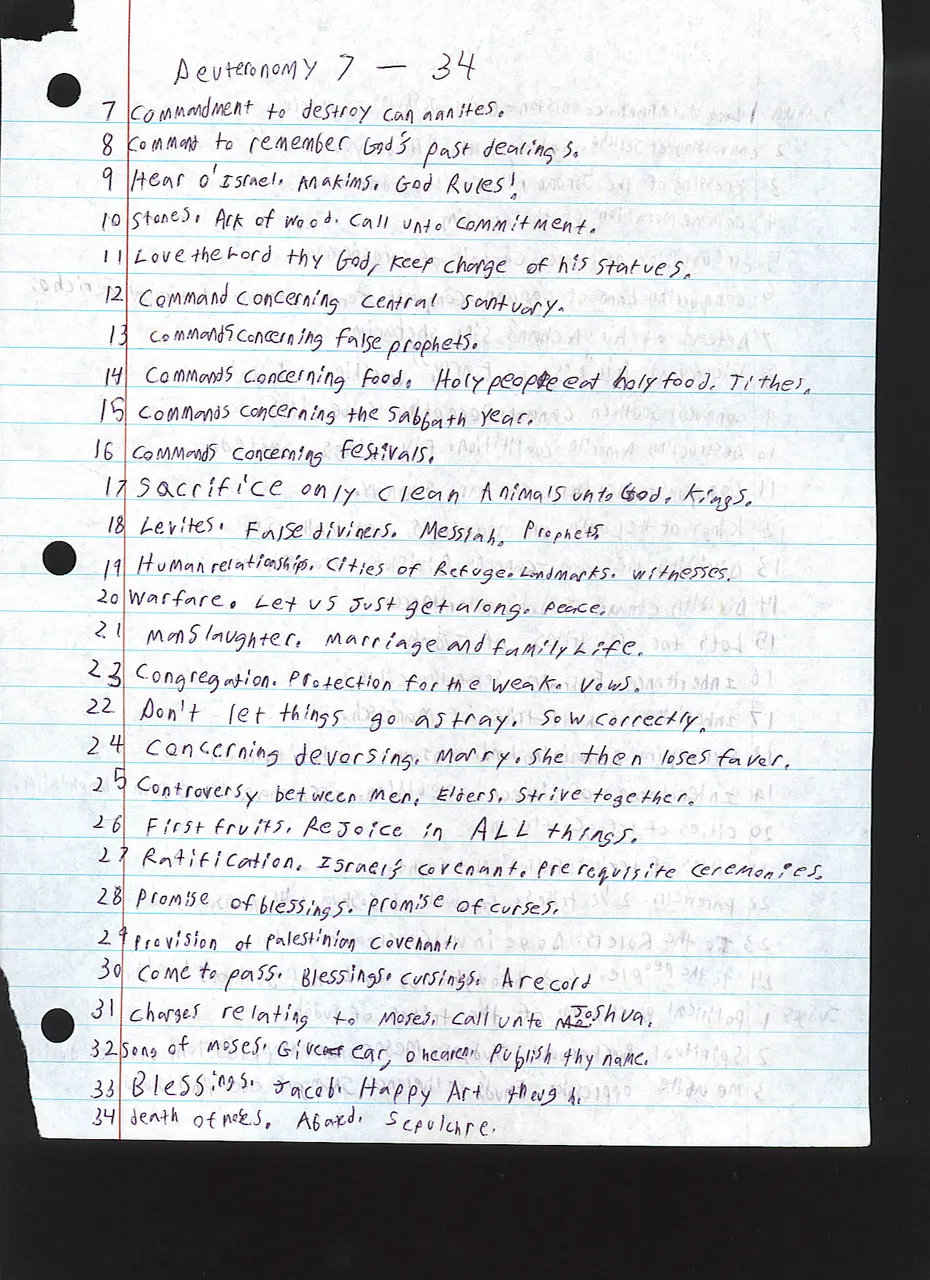 Deuteronomy 7 — 34
7 Commandment to destroy Canaanites.
8 Command to remember God's past dealings.
9 Hear O' Israel. Anakims. God Rules!
10 Stones. Ark of wood. Call unto commitment.
11 Love the Lord thy God, keep charge of his statues.
12 Command concerning central santuary.
13 Commands concerning false prophets.
14 Commands concerning food. Holy people eat holy food. Tithes.
15 Commands concerning the Sabbath year.
16 Commands concerning festivals.
17 Sacrifice only clean Animals unto God. Kings.
18 Levites. False diviners. Messiah. Prophets
19 Human relationship. Cities of Refuge. Landmarks. witnesses.
20 Warfare. Let us just get along. Peace.
21 Manslaughter. Marriage and family Life.
23 Congregation. Protection for the weak. Vows.
22 Don't let things go astray. Sow correctly.
24 Concerning devorsing. Marry. She then loses faver.
25 Controversy between men. Elders. Strive together.
26 First fruits. Rejoice in ALL things.
27 Ratification. Israel's covenant. Prerequisite ceremonies.
28 Promise of blessings. promise of curses.
29 provision of palestinion covenant.
30 Come to pass. Blessings. cursings. A record
31 Charges relating to Moses. Call unto Joshua.
32 Song of Moses. Give ear, O heaven. Publish thy name.
33 Blessings. Jacob. Happy Art
34 death of Moses. Sepulchre.